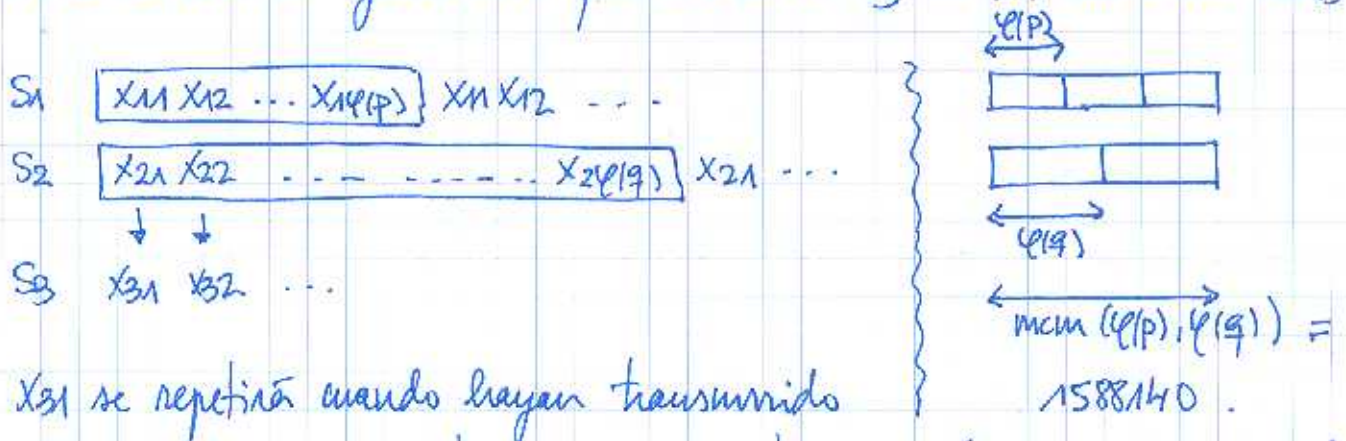 S1 x11 x12 ... x1φ(p) x11 x12 ...
S2 x21 x22 ... ... x2φ(q) x21 ...
S3 x31 x32 ...
x31 se repetirá cuando hayan transcurrido
φ(p)
φ(q)
mcm (φ(p), φ(q)) =
1588140.